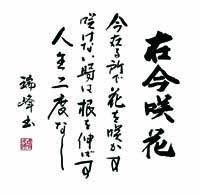 在今咲花
今在る所で花を咲かす
咲けない時は根を伸ばす
人生二度なし
瑞峰書